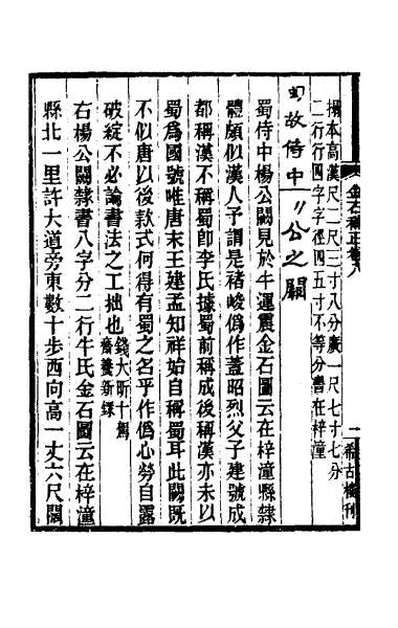 搨本高漢尺二尺三寸八分廣一尺七寸七分
二行行四字字徑四五寸不等分書在梓潼
故侍中
公之闕
蜀侍中楊公闕見於牛運震金石圖云在梓潼縣隸
體頗似漢人予謂是褚峻僞作蓋昭烈父子建號成
都稱漢不稱蜀卽李氏據蜀前稱成後稱漢亦未以
蜀爲國號唯唐末王建孟知祥始自稱蜀耳此闕既
不似唐以後款式何得有蜀之名乎作僞心勞自露
破綻不必論書法之工拙也錢大昕十駕
齋養新錄
右楊公闕隸書八字分二行牛氏金石圖云在梓潼
縣北一里許大道旁東數十步西向高一丈六尺闊
金石補正卷八
一
希古樓刊